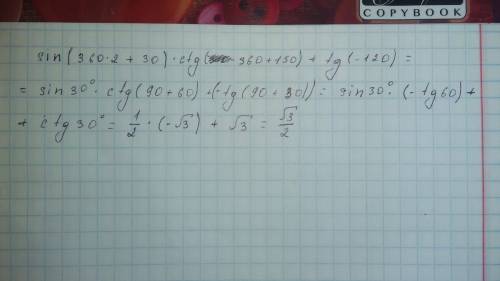 COPYBOOK
sin(360·2+30)·ctg(360+150)+tg(-120)=
= sin30°·ctg(90+60)+(-tg(90+30))= sin30°·(-tg60)+
+ ctg30°= 1/2·(-√3)+√3 = √3/2